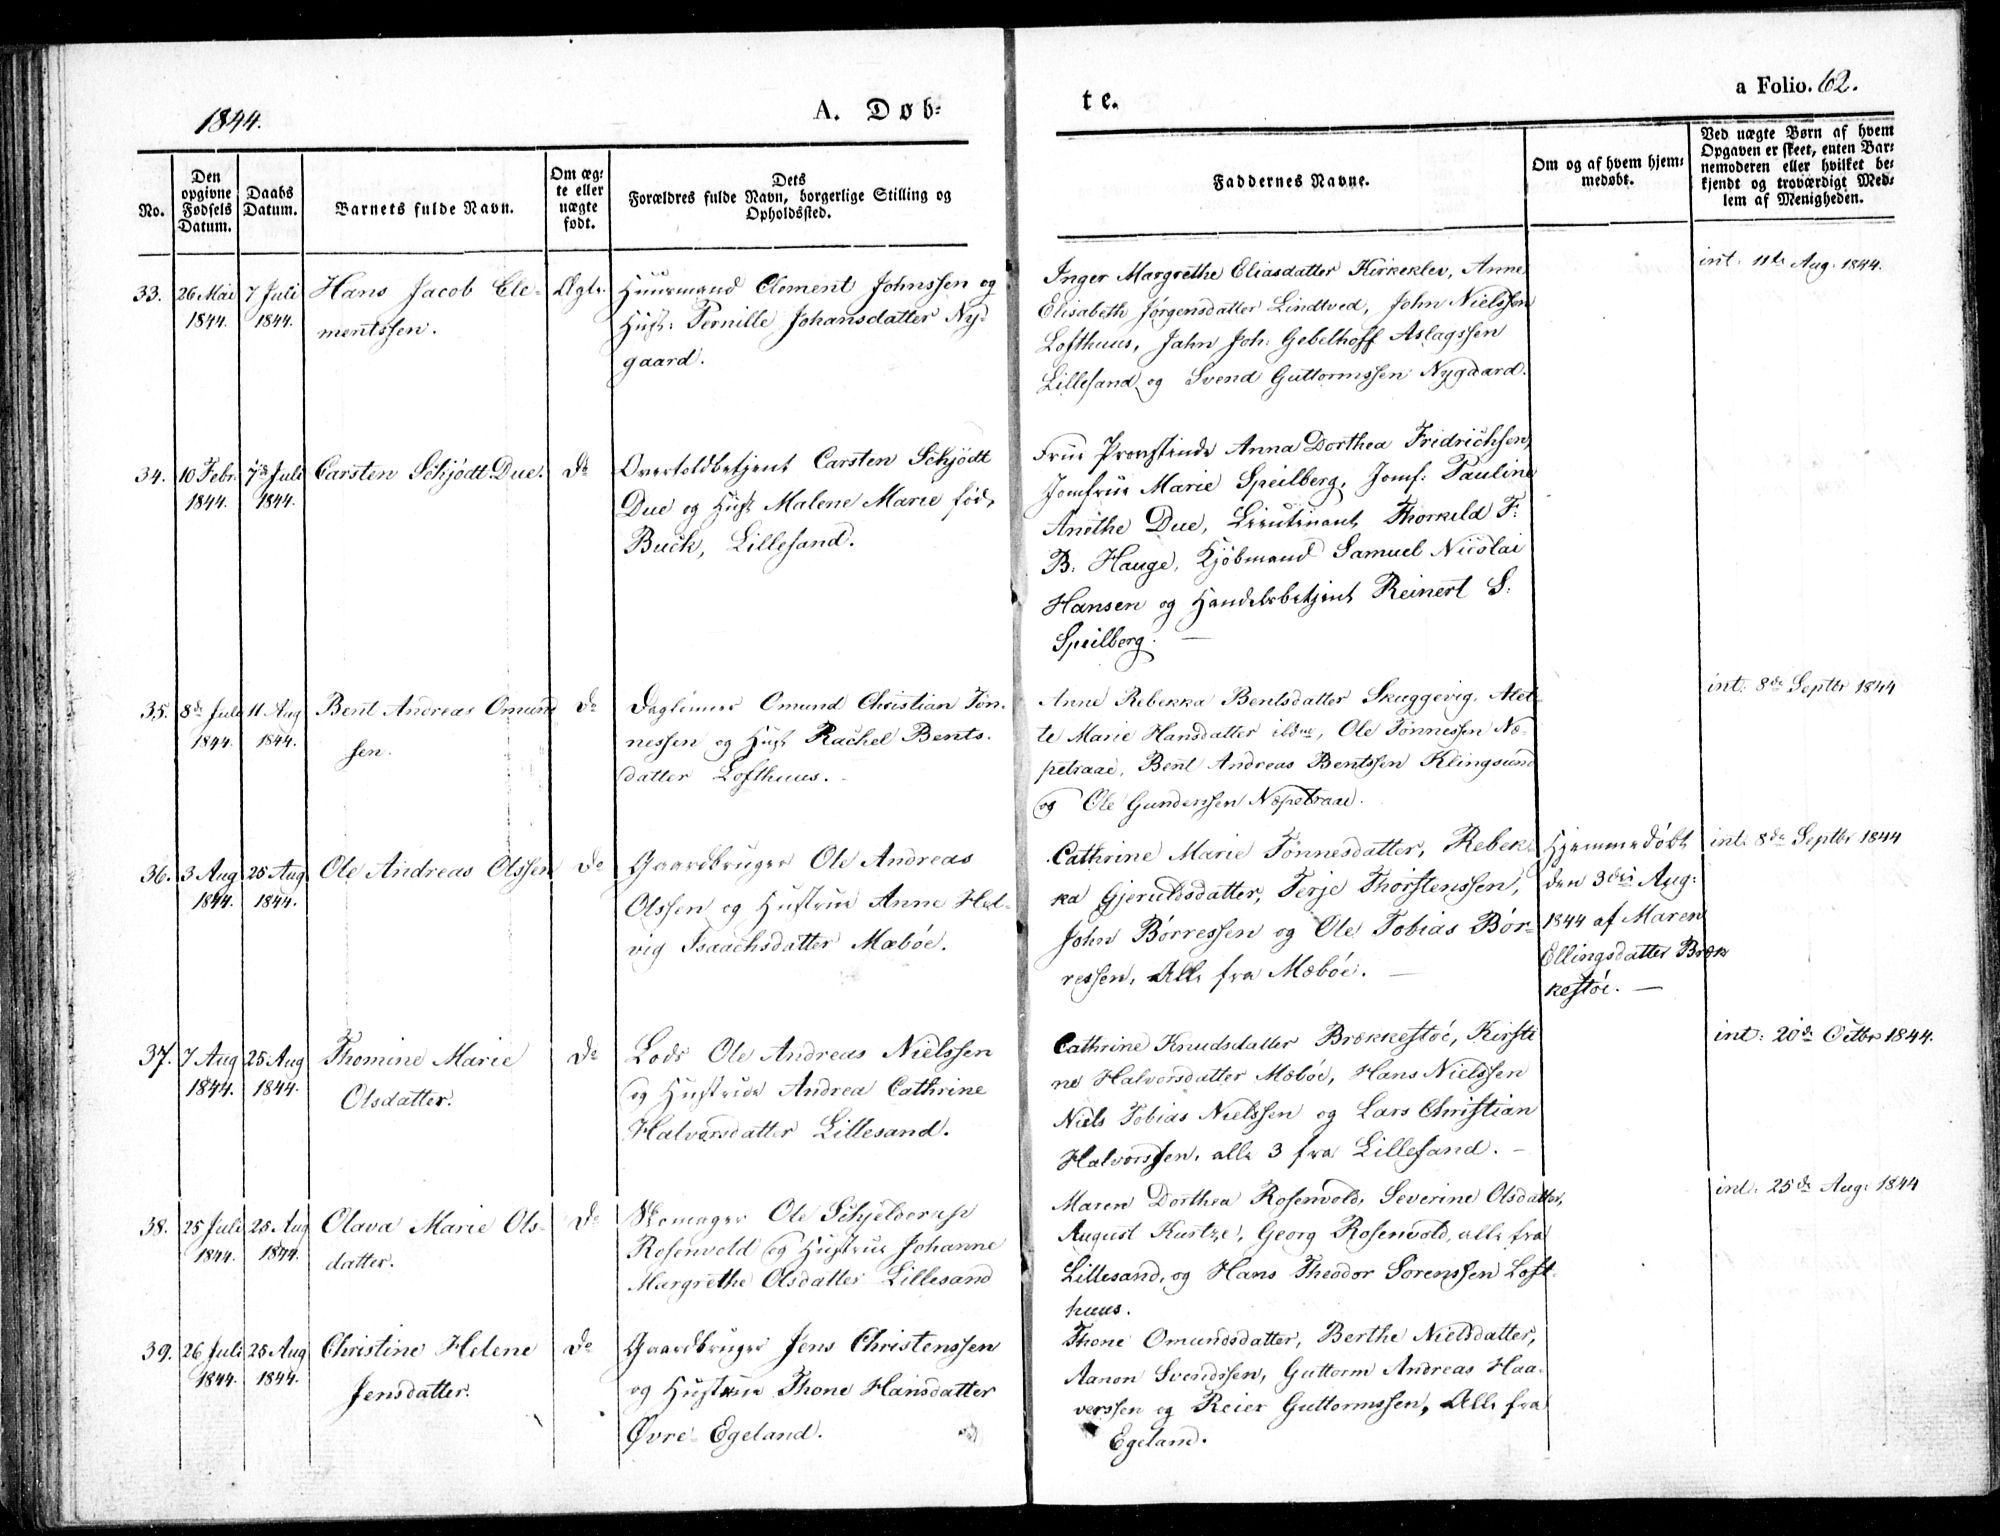 1844.
A. Døb-
te.
a Folio. 62.
No.
Den opgivne Fødsels Datum.
Daabs Datum.
Barnets fulde Navn.
Om æg-te eller uægte født.
Dets Forældres fulde Navn, borgerlige Stilling og Opholdssted.
Faddernes Navne.
Om og af hvem hjem-medøbt.
Ved uægte Børn af hvem
Opgaven er skeet, enten Bar-
nemoderen eller hvilket be-
kjendt og troværdigt Med-
lem af Menigheden.
33. 26 Mai 1844. 7 Juli 1844.
Hans Jacob Cle-
mentssen.
Ægte.
Huusmand Clement Johnssen og
Hust: Pernille Johansdatter Ny-
gaard.
Inger Margrethe Eliasdatter Kirkeklev, Anne
Elisabeth Jørgensdatter Lindtved, John Nielssen
Lofthuus, Jahn Joh: Gebelhoff Aslagssen
Lillesand og Svend Guttormssen Nygaard.
int: 11te Aug: 1844.
34. 10 Febr. 1844. 7de Juli 1844.
Carsten Schjödt Due.
Do
Overtoldbetjent Carsten Schjödt
Due og Hust Malene Marie fød,
Buck, Lillesand.
Frue Provstinde Anna Dorthea Fridrichsen,
Jomfrue Marie Speilberg, Jomf: Pauline
Anethe Due, Lieutenant Thorkild F:
B: Hauge, Kjöbmand Samuel Nicolai
Hansen og Handelsbetjent Reinert S:
Speilberg. —
35. 8de Juli 1844. 11 Aug 1844.
Bent Andreas Omund
sen.
Do
Dagleiner Omund Christian Tön-
nessen og Hust Rachel Bents-
datter Lofthuus.
Anne Rebekka Bentsdatter Skaggevig, Alet-
te Marie Hansdatter ibdm, Ole Tönnessen Næ-
petraae, Bent Andreas Bentssen Klingsund
og Ole Gundersen Næpetraae.
int: 8de Septbr 1844
36. 3 Aug 1844. 25 Aug 1844.
Ole Andreas Olssen
Do
Gaardbruger Ole Andreas
Olssen og Hustrue Anne Hel-
vig Isaachsdatter Mæbøe.
Cathrine Marie Tönnesdatter, Rebek-
ka Gjeruldsdatter, Terje Thorstenssen,
John Börressen og Ole Tobias Bör-
ressen, Alle fra Mæböe. —
Hjemmedöbt
den 3die Aug:
1844 af Maren
Ellingsdatter Bræk
kestöe. —
int: 8de Septbr 1844
37. 7 Aug 1844. 25 Aug 1844.
Thomine Marie
Olsdatter.
Do
Lods Ole Andreas Nielssen
og Hustrue Andrea Cathrine
Halvorsdatter Lillesand.
Cathrine Knudsdatter Brækkestöe, Kirsti
ne Halvorsdatter Mæböe, Hans Nielssen
Niels Tobias Nielssen og Lars Christian
Halvorssen, alle 3 fra Lillesand. —
int: 20de Octbr 1844.
38. 25 Juli 1844. 25 Aug 1844.
Olava Marie Ols-
datter.
Do
Skomager Ole Schjelderup
Rosenvold og Hustrue Johanne
Margrethe Olsdatter Lillesand
Maren Dorthea Rosenvold, Severine Olsdatter,
August Kurtze, Georg Rosenvold, alle fra
Lillesand, og Hans Theodor Sörenssen Loft-
huus.
int: 25de Aug: 1844
39. 26 Juli 1844. 25 Aug 1844.
Christine Helene
Jensdatter.
Do
Gaardbruger Jens Christenssen
og Hustrue Thone Hansdatter
Øvre-Egeland.
Thone Omundsdatter, Berthe Nielsdatter,
Aanon Svendssen, Guttorm Andreas Haa-
verssen og Reier Guttormssen, Alle fra
Egeland.